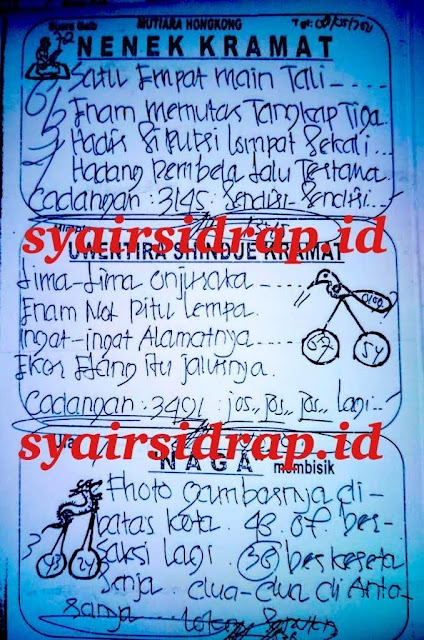 Syair Gaib MUTIARA HONGKONG Tgl: 08/05/2021
NENEK KRAMAT
Satu Empat main Tali
Enam memutar Tangkap Tiga
Hadir si putri Lompat Sekali
Hadang pembela Lalu Pertama
Cadangan : 3145 : Sendiri-Sendiri
syairsidrap.id
UWENTIRA SHINDJE KRAMAT
Lima-Lima
Enam Not Pitu Lempa
Ingat-ingat Alamatnya
Ekor Elang itu jalurnya
Cadangan : 3491 : jos,, jos,, jos,, lagi
57 54
syairsidrap.id
NAGA membisik
Photo gambarnya di-
batas kota. 43. of ber-
Saksi lagi 36 berkereta
Senja. dua-dua di Anta-
ranya